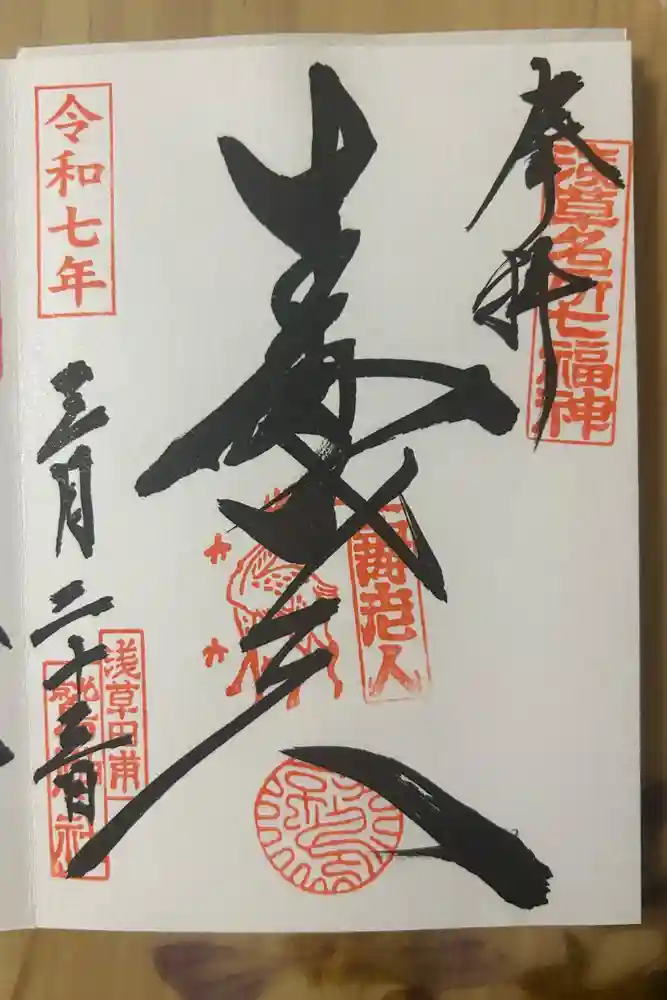 奉拝
浅草名所七福神
寿老人
寿老人
令和七年
三月二十三日
浅草田甫
鷲神社